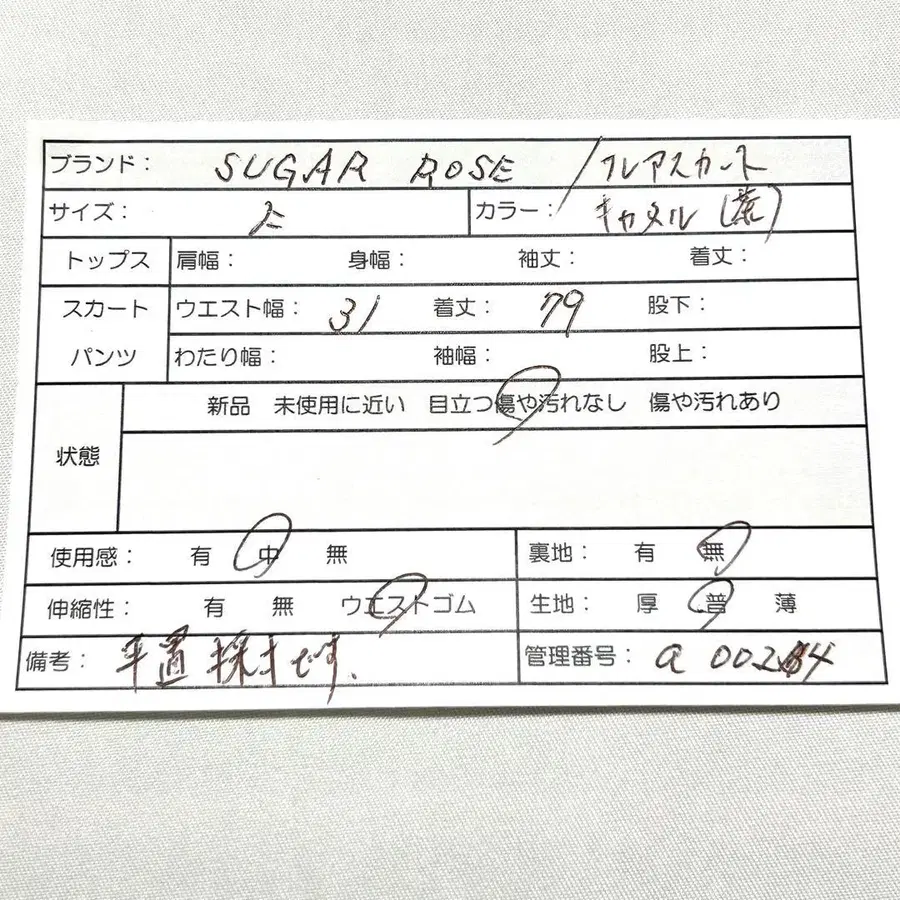 ブランド： SUGAR ROSE /フレアスカート
サイズ： F カラー： キャメル(茶)
トップス 肩幅： 身幅： 袖丈： 着丈：
スカート ウエスト幅： 31 着丈： 79 股下：
パンツ わたり幅： 袖幅： 股上：
新品 未使用に近い 目立つ傷や汚れなし 傷や汚れあり
状態
使用感： 有 中 無 裏地： 有 無
伸縮性： 有 無 ウエストゴム 生地： 厚 普 薄
備考： 平置採寸です. 管理番号： a 00284